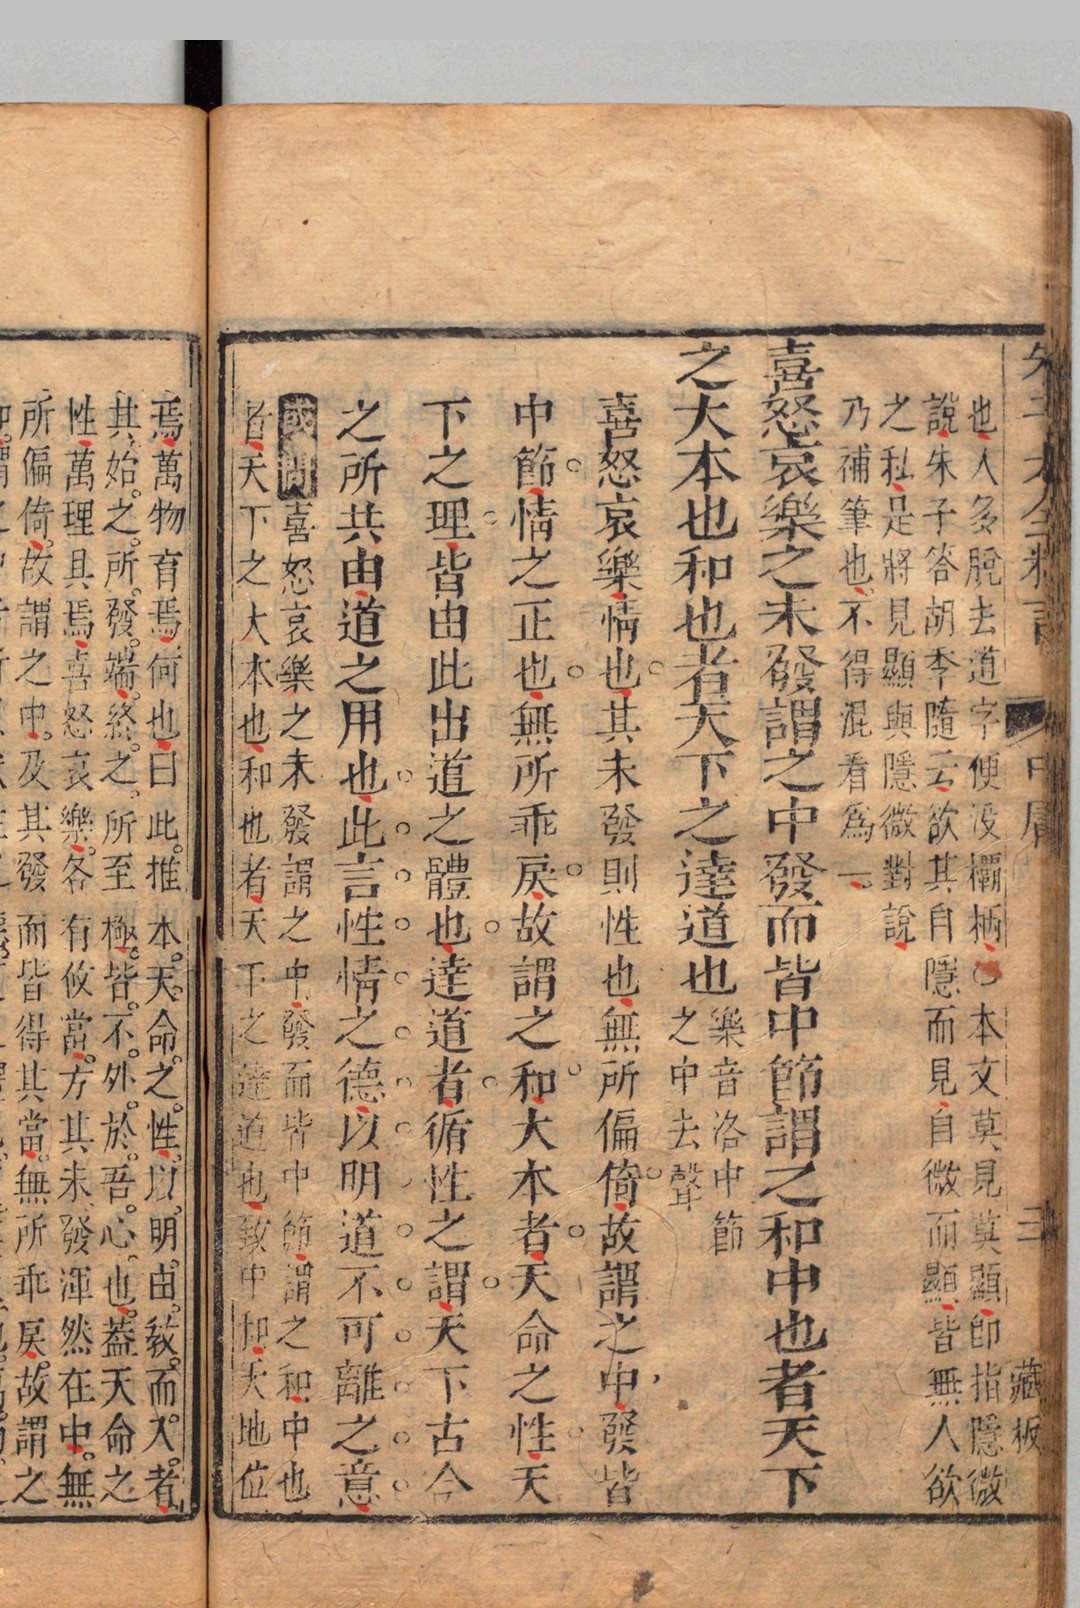 也人多脫去道字便沒欛柄〇本文莫見莫顯卽指隱微
說朱子答胡季隨云欲其自隱而見自微而顯皆無人欲
之私是將見顯與隱微對說
乃補筆也不得混看爲一
喜怒哀樂之未發謂之中發而皆中節謂之和中也者天下
之大本也和也者天下之達道也
樂音洛中節
之中去聲
喜怒哀樂情也其未發則性也無所偏倚故謂之中發皆
中節情之正也無所乖戾故謂之和大本者天命之性天
下之理皆由此出道之體也達道者循性之謂天下古今
之所共由道之用也此言性情之德以明道不可離之意
喜怒哀樂之未發謂之中發而皆中節謂之和中也
者天下之大本也和也者天下之達道也致中和天地位
焉萬物育焉何也曰此推本天命之性以明由敎而入者
其始之所發端終之所至極皆不外於吾心也蓋天命之
性萬理具焉喜怒哀樂各有攸當方其未發渾然在中無
所偏倚故謂之中及其發而皆得其當無所乖戾故謂之
中庸
三
藏板